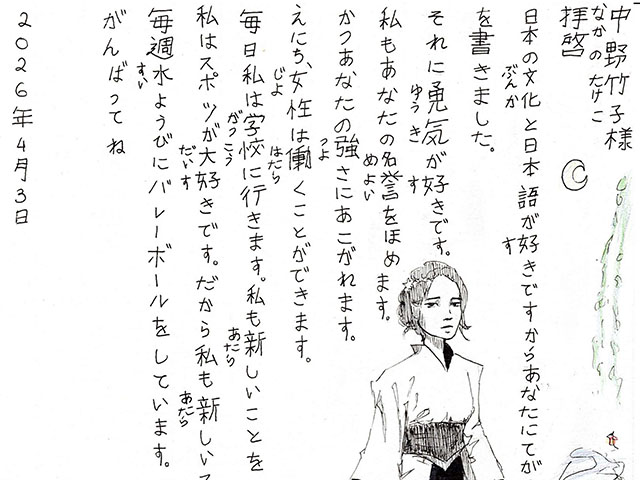 中野竹子様
なかの たけこ
拝啓
日本の文化と日本語が好きですからあなたにてが
ぶんか す
を書きました。
それに勇気が好きです。
ゆうき す
私もあなたの名誉をほめます。
めよい
かつあなたの強さにあこがれます。
つよ
えにち、女性は働くことができます。
じよ はたら
毎日私は学校に行きます。私も新しいことを
がっこう あたら
私はスポツが大好きです。だから私も新しい
だいす あたら
毎週水ようびにバレーボールをしています。
すい
がんばってね
2026年4月3日